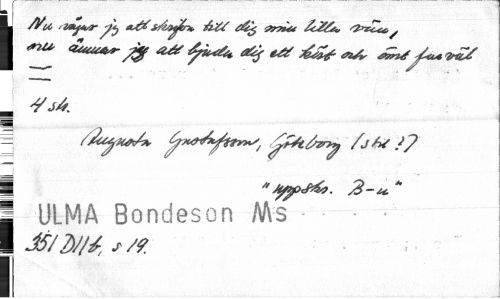 Nu vågar jag att skrifva till dig min lilla vän,
nu ämnar jag att bjuda dig ett kärt och ömt farväl
4 str.
Augusta Gustafsson, Göteborg (std ?)
"uppskr. B-n"
ULMA Bondeson Ms
351 D11b, s 19.